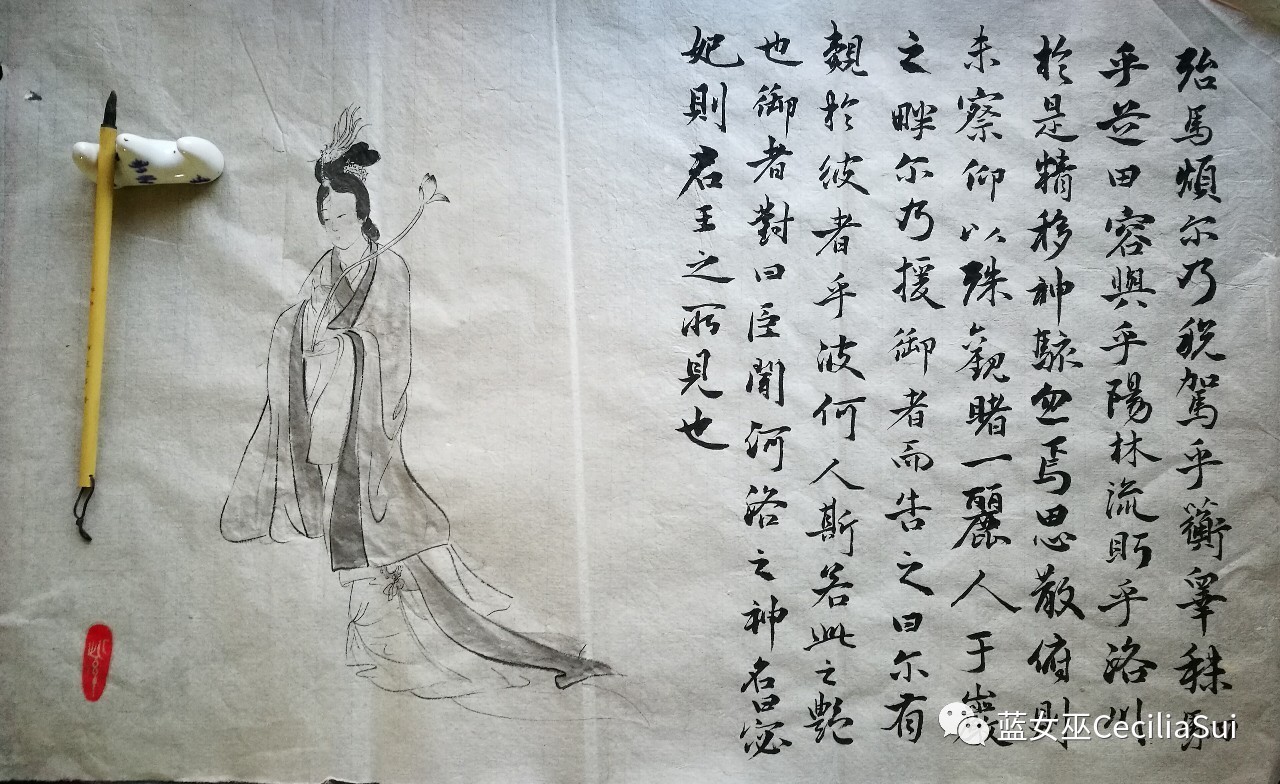 殆馬煩尔乃税駕乎蘅睾秣駟
乎芝田容與乎陽林流眄乎洛川
於是精移神駭忽焉思散俯則
未察仰以殊觀睹一麗人于巖
之畔尔乃援御者而告之曰尔有
覿於彼者乎彼何人斯若此之艷
也御者對曰臣聞河洛之神名曰宓
妃則君王之所見也
蓝女巫CeciliaSui